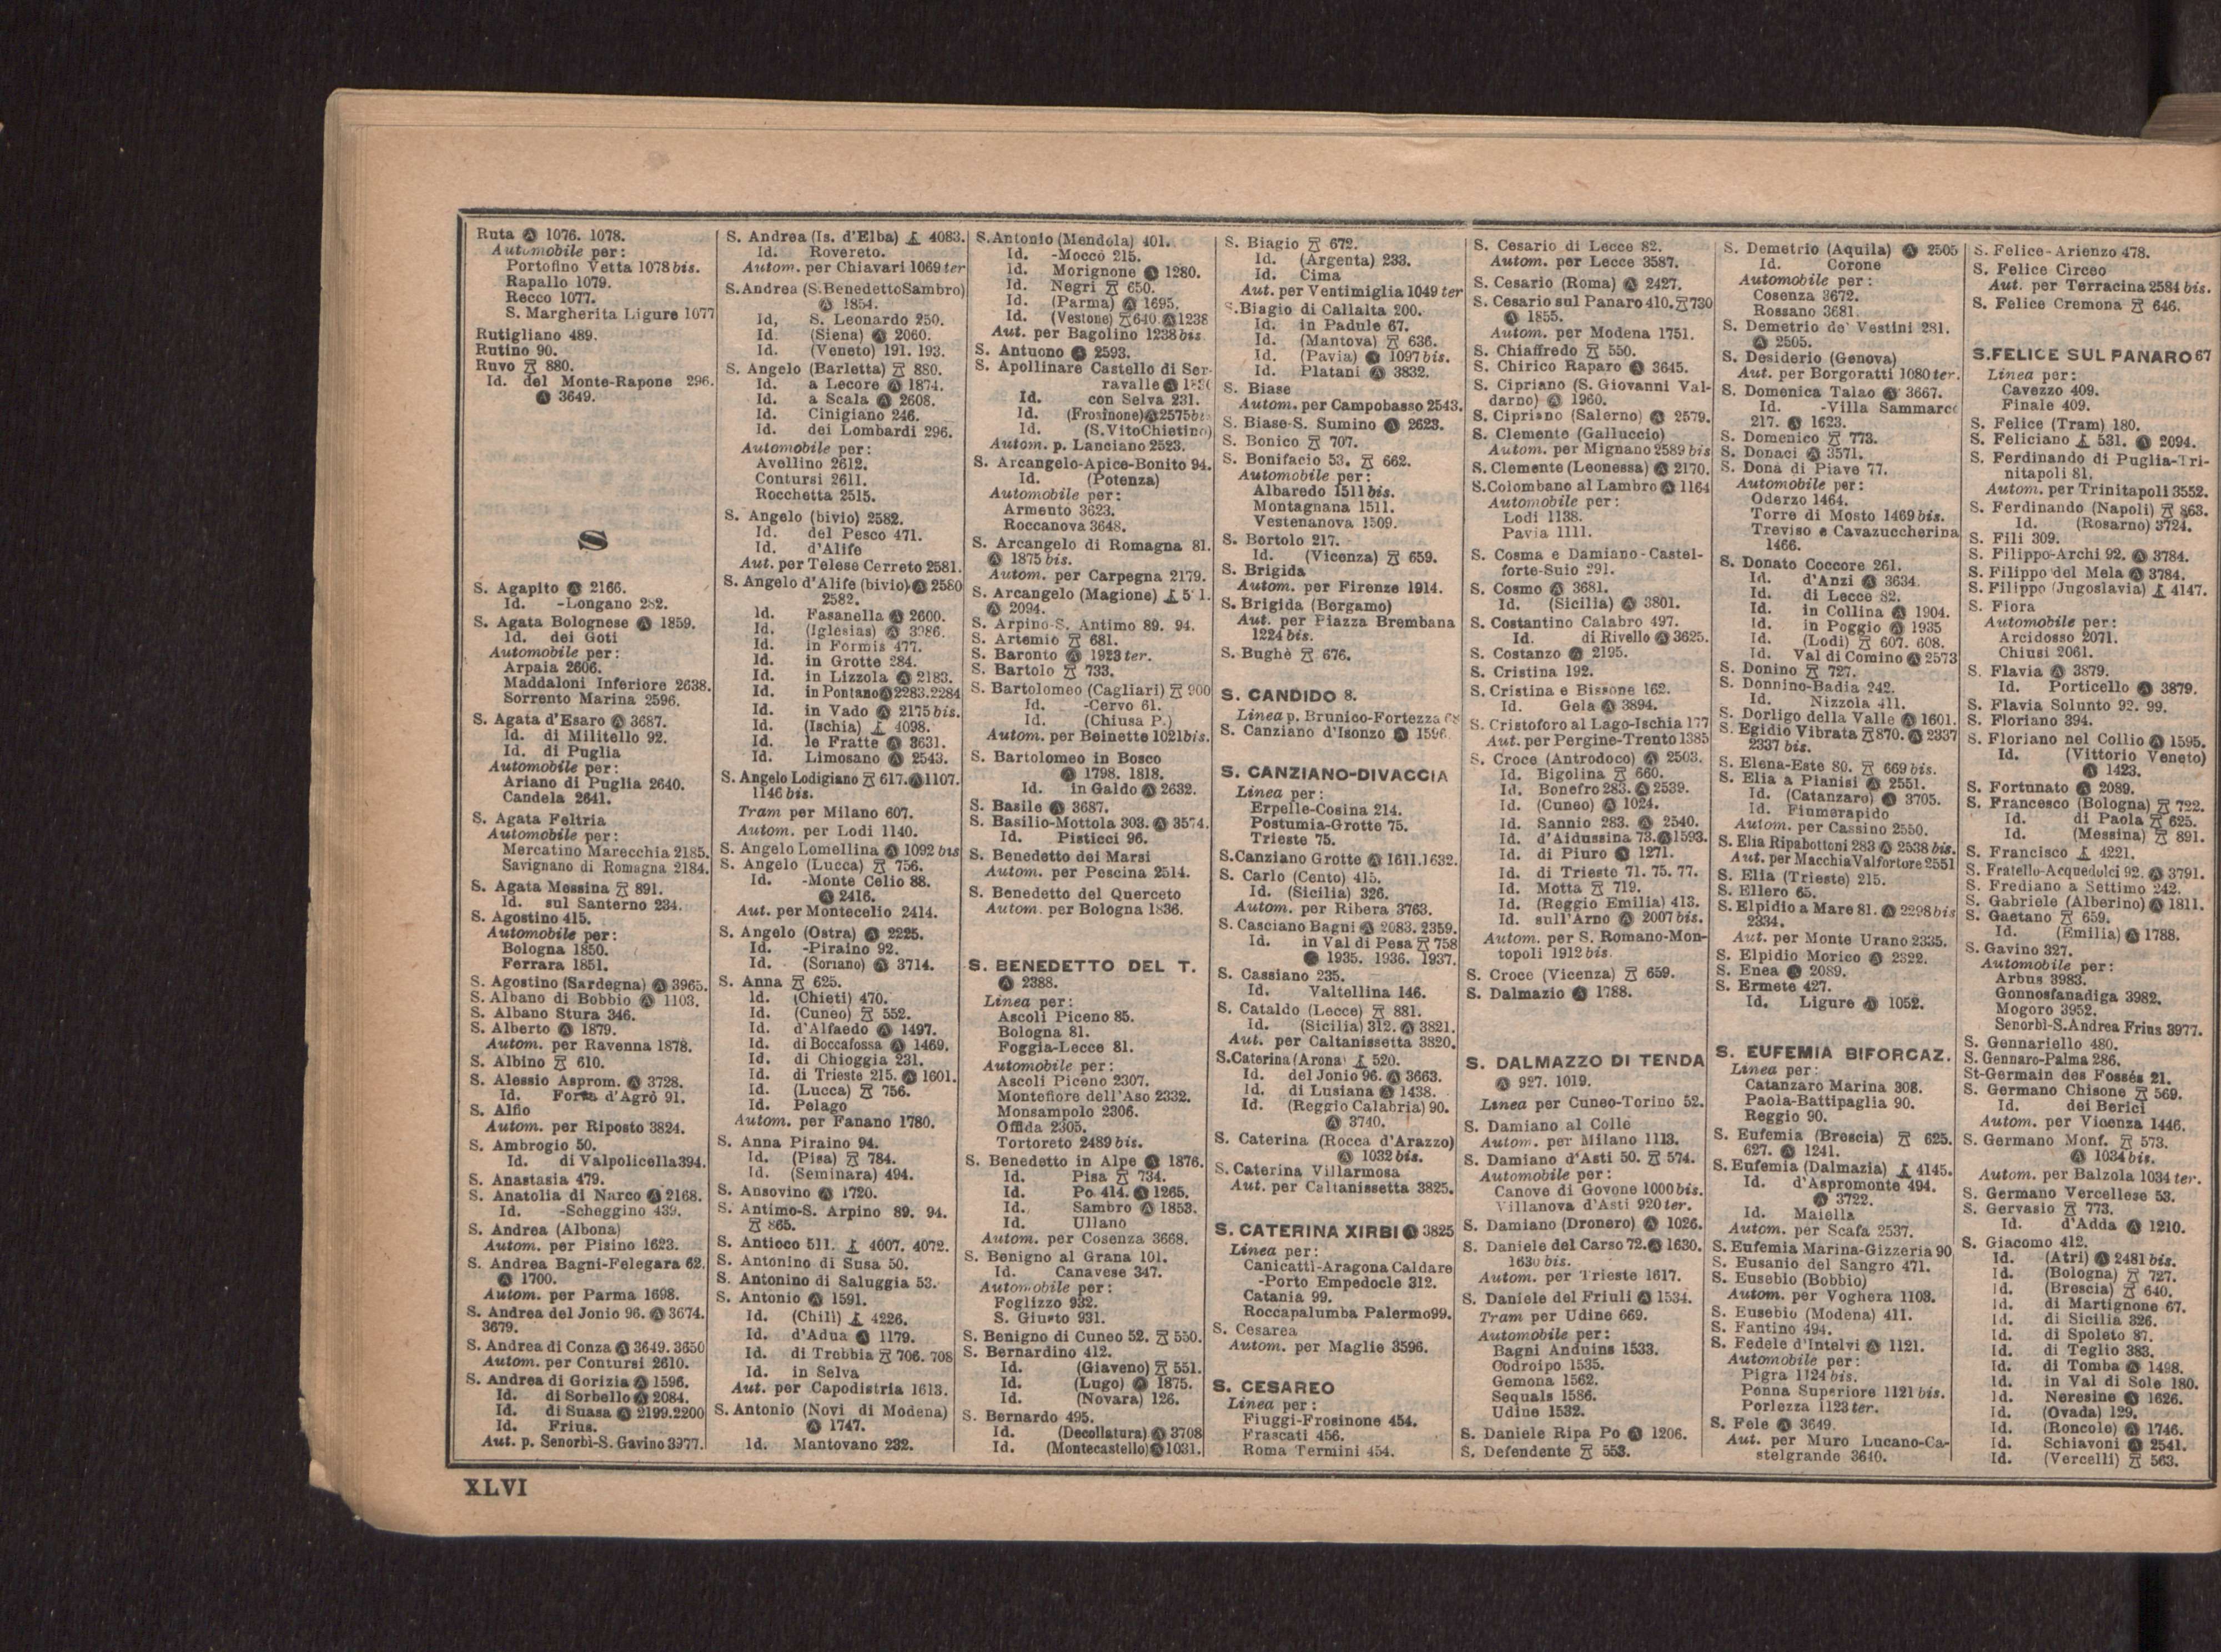 Ruta Ⓐ 1076. 1078.
Automobile per:
Portofino Vetta 1078 bis.
Rapallo 1079.
Recco 1077.
S. Margherita Ligure 1077
Rutigliano 489.
Rutino 90.
Ruvo 880.
Id. del Monte-Rapone 296.
Ⓐ 3649.
S
S. Agapito Ⓐ 2166.
Id. -Longano 282.
S. Agata Bolognese Ⓐ 1859.
Id. dei Goti
Automobile per:
Arpaia 2606.
Maddaloni Inferiore 2638.
Sorrento Marina 2596.
S. Agata d'Esaro Ⓐ 3687.
Id. di Militello 92.
Id. di Puglia
Automobile per:
Ariano di Puglia 2640.
Candela 2641.
S. Agata Feltria
Automobile per:
Mercatino Marecchia 2185.
Savignano di Romagna 2184.
S. Agata Messina 891.
Id. sul Santerno 234.
S. Agostino 415.
Automobile per:
Bologna 1850.
Ferrara 1851.
S. Agostino (Sardegna) Ⓐ 3965.
S. Albano di Bobbio Ⓐ 1103.
S. Albano Stura 346.
S. Alberto Ⓐ 1879.
Autom. per Ravenna 1878.
S. Albino 610.
S. Alessio Asprom. Ⓐ 3728.
Id. Forza d'Agrò 91.
S. Alfio
Autom. per Riposto 3824.
S. Ambrogio 50.
Id. di Valpolicella 394.
S. Anastasia 479.
S. Anatolia di Narco Ⓐ 2168.
Id. -Scheggino 439.
S. Andrea (Albona)
Autom. per Pisino 1623.
S. Andrea Bagni-Felegara 62.
Ⓐ 1700.
Autom. per Parma 1698.
S. Andrea del Jonio 96. Ⓐ 3674.
3679.
S. Andrea di Conza Ⓐ 3649. 3650
Autom. per Contursi 2610.
S. Andrea di Gorizia Ⓐ 1596.
Id. di Sorbello Ⓐ 2084.
Id. di Suasa Ⓐ 2199.2200
Id. Frius.
Aut. p. Senorbì-S. Gavino 3977.
S. Andrea (Is. d'Elba) 4083.
Id. Rovereto.
Autom. per Chiavari 1069 ter
S. Andrea (S. Benedetto Sambro)
Ⓐ 1854.
Id, S. Leonardo 250.
Id. (Siena) Ⓐ 2060.
Id. (Veneto) 191. 193.
S. Angelo (Barletta) 880.
Id. a Lecore Ⓐ 1874.
Id. a Scala Ⓐ 2608.
Id. Cinigiano 246.
Id. dei Lombardi 296.
Automobile per:
Avellino 2612.
Contursi 2611.
Rocchetta 2515.
S. Angelo (bivio) 2582.
Id. del Pesco 471.
Id. d'Alife
Aut. per Telese Cerreto 2581.
S. Angelo d'Alife (bivio) Ⓐ 2580
2582.
Id. Fasanella Ⓐ 2600.
Id. (Iglesias) Ⓐ 3986.
Id. in Formis 477.
Id. in Grotte 284.
Id. in Lizzola Ⓐ 2183.
Id. in Pontano Ⓐ 2283.2284
Id. in Vado Ⓐ 2175 bis.
Id. (Ischia) 4098.
Id. le Fratte Ⓐ 3631.
Id. Limosano Ⓐ 2543.
S. Angelo Lodigiano 617. Ⓐ 1107.
1146 bis.
Tram per Milano 607.
Autom. per Lodi 1140.
S. Angelo Lomellina Ⓐ 1092 bis
S. Angelo (Lucca) 756.
Id. -Monte Celio 88.
Ⓐ 2416.
Aut. per Montecelio 2414.
S. Angelo (Ostra) Ⓐ 2225.
Id. -Piraino 92.
Id. (Soriano) Ⓐ 3714.
S. Anna 625.
Id. (Chieti) 470.
Id. (Cuneo) 552.
Id. d'Alfaedo Ⓐ 1497.
Id. di Boccafossa Ⓐ 1469.
Id. di Chioggia 231.
Id. di Trieste 215. Ⓐ 1601.
Id. (Lucca) 756.
Id. Pelago
Autom. per Fanano 1780.
S. Anna Piraino 94.
Id. (Pisa) 784.
Id. (Seminara) 494.
S. Ansovino Ⓐ 1720.
S. Antimo-S. Arpino 89. 94.
865.
S. Antioco 511. 4007. 4072.
S. Antonino di Susa 50.
S. Antonino di Saluggia 53.
S. Antonio Ⓐ 1591.
Id. (Chilì) 4226.
Id. d'Adua Ⓐ 1179.
Id. di Trebbia 706. 708
Id. in Selva
Aut. per Capodistria 1613.
S. Antonio (Novi di Modena)
Ⓐ 1747.
Id. Mantovano 232.
S. Antonio (Mendola) 401.
Id. -Mocco 215.
Id. Morignone Ⓐ 1280.
Id. Negri 650.
Id. (Parma) Ⓐ 1695.
Id. (Vestone) 640. Ⓐ 1238
Aut. per Bagolino 1238 bis.
S. Antuono Ⓐ 2593.
S. Apollinare Castello di Ser-
ravalle Ⓐ
Id. con Selva 231.
Id. (Frosinone) Ⓐ 2575
Id. (S. Vito Chietino)
Autom. p. Lanciano 2523.
S. Arcangelo-Apice-Bonito 94.
Id. (Potenza)
Automobile per:
Armento 3623.
Roccanova 3648.
S. Arcangelo di Romagna 81.
Ⓐ 1875 bis.
Autom. per Carpegna 2179.
S. Arcangelo (Magione)
Ⓐ 2094.
S. Arpino-S. Antimo 89. 94.
S. Artemio 681.
S. Baronto Ⓐ 1923 ter.
S. Bartolo 733.
S. Bartolomeo (Cagliari) 900
Id. -Cervo 61.
Id. (Chiusa P.)
Autom. per Beinette 1021 bis.
S. Bartolomeo in Bosco
Ⓐ 1798. 1818.
Id. in Galdo Ⓐ 2632.
S. Basile Ⓐ 3687.
S. Basilio-Mottola 303. Ⓐ 3574.
Id. Pisticci 96.
S. Benedetto dei Marsi
Autom. per Pescina 2514.
S. Benedetto del Querceto
Autom. per Bologna 1836.
S. BENEDETTO DEL T.
Ⓐ 2388.
Linea per:
Ascoli Piceno 85.
Bologna 81.
Foggia-Lecce 81.
Automobile per:
Ascoli Piceno 2307.
Montefiore dell'Aso 2332.
Monsampolo 2306.
Offida 2305.
Tortoreto 2489 bis.
S. Benedetto in Alpe Ⓐ 1876.
Id. Pisa 734.
Id. Po 414. Ⓐ 1265.
Id. Sambro Ⓐ 1853.
Id. Ullano
Autom. per Cosenza 3668.
S. Benigno al Grana 101.
Id. Canavese 347.
Automobile per:
Foglizzo 932.
S. Giusto 931.
S. Benigno di Cuneo 52. 550.
S. Bernardino 412.
Id. (Giaveno) 551.
Id. (Lugo) Ⓐ 1875.
Id. (Novara) 126.
S. Bernardo 495.
Id. (Decollatura) Ⓐ 3708
Id. (Montecastello) Ⓐ 1031.
S. Biagio 672.
Id. (Argenta) 233.
Id. Cima
Aut. per Ventimiglia 1049 ter
S. Biagio di Callalta 200.
Id. in Padule 67.
Id. (Mantova) 636.
Id. (Pavia) Ⓐ 1097 bis.
Id. Platani Ⓐ 3832.
S. Biase
Autom. per Campobasso 2543.
S. Biase-S. Sumino Ⓐ 2623.
S. Bonico 707.
S. Bonifacio 53. 662.
Automobile per:
Albaredo 1511 bis.
Montagnana 1511.
Vestenanova 1509.
S. Bortolo 217.
Id. (Vicenza) 659.
S. Brigida
Autom. per Firenze 1914.
S. Brigida (Bergamo)
Aut. per Piazza Brembana
1224 bis.
S. Bughè 676.
S. CANDIDO 8.
Linea p. Brunico-Fortezza
S. Canziano d'Isonzo Ⓐ 1596
S. CANZIANO-DIVACCIA
Linea per:
Erpelle-Cosina 214.
Postumia-Grotte 75.
Trieste 75.
S. Canziano Grotte Ⓐ 1611.1632.
S. Carlo (Cento) 415.
Id. (Sicilia) 326.
Autom. per Ribera 3763.
S. Casciano Bagni Ⓐ 2083. 2359.
Id. in Val di Pesa 758
Ⓐ 1935. 1936. 1937.
S. Cassiano 235.
Id. Valtellina 146.
S. Cataldo (Lecce) 881.
Id. (Sicilia) 312. Ⓐ 3821.
Aut. per Caltanissetta 3820.
S. Caterina (Arona) 520.
Id. del Jonio 96. Ⓐ 3663.
Id. di Lusiana Ⓐ 1438.
Id. (Reggio Calabria) 90.
Ⓐ 3740.
S. Caterina (Rocca d'Arazzo)
Ⓐ 1032 bis.
S. Caterina Villarmosa
Aut. per Caltanissetta 3825.
S. CATERINA XIRBI Ⓐ 3825
Linea per:
Canicattì-Aragona Caldare
-Porto Empedocle 312.
Catania 99.
Roccapalumba Palermo 99.
S. Cesarea
Autom. per Maglie 3596.
S. CESAREO
Linea per:
Fiuggi-Frosinone 454.
Frascati 456.
Roma Termini 454.
S. Cesario di Lecce 82.
Autom. per Lecce 3587.
S. Cesario (Roma) Ⓐ 2427.
S. Cesario sul Panaro 410. 730
Ⓐ 1855.
Autom. per Modena 1751.
S. Chiaffredo 550.
S. Chirico Raparo Ⓐ 3645.
S. Cipriano (S. Giovanni Val-
darno) Ⓐ 1960.
S. Cipriano (Salerno) Ⓐ 2579.
S. Clemente (Galluccio)
Autom. per Mignano 2589 bis
S. Clemente (Leonessa) Ⓐ 2170.
S. Colombano al Lambro Ⓐ 1164
Automobile per:
Lodi 1138.
Pavia 1111.
S. Cosma e Damiano-Castel-
forte-Suio 291.
S. Cosmo Ⓐ 3681.
Id. (Sicilia) Ⓐ 3801.
S. Costantino Calabro 497.
Id. di Rivello Ⓐ 3625.
S. Costanzo Ⓐ 2195.
S. Cristina 192.
S. Cristina e Bissone 162.
Id. Gela Ⓐ 3894.
S. Cristoforo al Lago-Ischia 177
Aut. per Pergine-Trento 1385
S. Croce (Antrodoco) Ⓐ 2503.
Id. Bigolina 660.
Id. Bonefro 283. Ⓐ 2539.
Id. (Cuneo) Ⓐ 1024.
Id. Sannio 283. Ⓐ 2540.
Id. d'Aidussina 73. Ⓐ 1593.
Id. di Piuro Ⓐ 1271.
Id. di Trieste 71. 75. 77.
Id. Motta 719.
Id. (Reggio Emilia) 413.
Id. sull'Arno Ⓐ 2007 bis.
Autom. per S. Romano-Mon-
topoli 1912 bis.
S. Croce (Vicenza) 659.
S. Dalmazio Ⓐ 1788.
S. DALMAZZO DI TENDA
Ⓐ 927. 1019.
Linea per Cuneo-Torino 52.
S. Damiano al Colle
Autom. per Milano 1113.
S. Damiano d'Asti 50. 574.
Automobile per:
Canove di Govone 1000 bis.
Villanova d'Asti 920 ter.
S. Damiano (Dronero) Ⓐ 1026.
S. Daniele del Carso 72. Ⓐ 1630.
1630 bis.
Autom. per Trieste 1617.
S. Daniele del Friuli Ⓐ 1534.
Tram per Udine 669.
Automobile per:
Bagni Anduins 1533.
Codroipo 1535.
Gemona 1562.
Sequals 1586.
Udine 1532.
S. Daniele Ripa Po Ⓐ 1206.
S. Defendente 553.
S. Demetrio (Aquila) Ⓐ 2505
Id. Corone
Automobile per:
Cosenza 3672.
Rossano 3681.
S. Demetrio de' Vestini 281.
Ⓐ 2505.
S. Desiderio (Genova)
Aut. per Borgoratti 1080 ter.
S. Domenica Talao Ⓐ 3667.
Id. -Villa Sammarco
217. Ⓐ 1623.
S. Domenico 773.
S. Donaci Ⓐ 3571.
S. Donà di Piave 77.
Automobile per:
Oderzo 1464.
Torre di Mosto 1469 bis.
Treviso e Cavazuccherina
1466.
S. Donato Coccore 261.
Id. d'Anzi Ⓐ 3634.
Id. di Lecce 82.
Id. in Collina Ⓐ 1904.
Id. in Poggio Ⓐ 1935
Id. (Lodi) 607. 608.
Id. Val di Comino Ⓐ 2573
S. Donino 727.
S. Donnino-Badia 242.
Id. Nizzola 411.
S. Dorligo della Valle Ⓐ 1601.
S. Egidio Vibrata 870. Ⓐ 2337
2337 bis.
S. Elena-Este 80. 669 bis.
S. Elia a Pianisi Ⓐ 2551.
Id. (Catanzaro) Ⓐ 3705.
Id. Fiumerapido
Autom. per Cassino 2550.
S. Elia Ripabottoni 283 Ⓐ 2538 bis.
Aut. per Macchia Valfortore 2551
S. Elia (Trieste) 215.
S. Ellero 65.
S. Elpidio a Mare 81. Ⓐ 2298 bis
2334.
Aut. per Monte Urano 2335.
S. Elpidio Morico Ⓐ 2322.
S. Enea Ⓐ 2089.
S. Ermete 427.
Id. Ligure Ⓐ 1052.
S. EUFEMIA BIFORCAZ.
Linea per:
Catanzaro Marina 308.
Paola-Battipaglia 90.
Reggio 90.
S. Eufemia (Brescia) 625.
627. Ⓐ 1241.
S. Eufemia (Dalmazia) 4145.
Id. d'Aspromonte 494.
Ⓐ 3722.
Id. Maiella
Autom. per Scafa 2537.
S. Eufemia Marina-Gizzeria 90
S. Eusanio del Sangro 471.
S. Eusebio (Bobbio)
Autom. per Voghera 1103.
S. Eusebio (Modena) 411.
S. Fantino 494.
S. Fedele d'Intelvi Ⓐ 1121.
Automobile per:
Pigra 1124 bis.
Ponna Superiore 1121 bis.
Porlezza 1123 ter.
S. Fele Ⓐ 3649.
Aut. per Muro Lucano-Ca-
stelgrande 3640.
S. Felice-Arienzo 478.
S. Felice Circeo
Aut. per Terracina 2584 bis.
S. Felice Cremona 646.
S. FELICE SUL PANARO 67
Linea per:
Cavezzo 409.
Finale 409.
S. Felice (Tram) 180.
S. Feliciano 531. Ⓐ 2094.
S. Ferdinando di Puglia-Tri-
nitapoli 81.
Autom. per Trinitapoli 3552.
S. Ferdinando (Napoli) 863.
Id. (Rosarno) 3724.
S. Fili 309.
S. Filippo-Archi 92. Ⓐ 3784.
S. Filippo del Mela Ⓐ 3784.
S. Filippo (Jugoslavia) 4147.
S. Fiora
Automobile per:
Arcidosso 2071.
Chiusi 2061.
S. Flavia Ⓐ 3879.
Id. Porticello Ⓐ 3879.
S. Flavia Solunto 92. 99.
S. Floriano 394.
S. Floriano nel Collio Ⓐ 1595.
Id. (Vittorio Veneto)
Ⓐ 1423.
S. Fortunato Ⓐ 2089.
S. Francesco (Bologna) 722.
Id. di Paola 625.
Id. (Messina) 891.
S. Francisco 4221.
S. Fratello-Acquedolci 92. Ⓐ 3791.
S. Frediano a Settimo 242.
S. Gabriele (Alberino) Ⓐ 1811.
S. Gaetano 659.
Id. (Emilia) Ⓐ 1788.
S. Gavino 327.
Automobile per:
Arbus 3983.
Gonnosfanadiga 3982.
Mogoro 3952.
Senorbì-S. Andrea Frius 3977.
S. Gennariello 480.
S. Gennaro-Palma 286.
St-Germain des Fossés 21.
S. Germano Chisone 569.
Id. dei Berici
Autom. per Vicenza 1446.
S. Germano Monf. 573.
Ⓐ 1034 bis.
Autom. per Balzola 1034 ter.
S. Germano Vercellese 53.
S. Gervasio 773.
Id. d'Adda Ⓐ 1210.
S. Giacomo 412.
Id. (Atri) Ⓐ 2481 bis.
Id. (Bologna) 727.
Id. (Brescia) 640.
Id. di Martignone 67.
Id. di Sicilia 326.
Id. di Spoleto 87.
Id. di Teglio 383.
Id. di Tomba Ⓐ 1498.
Id. in Val di Sole 180.
Id. Neresine Ⓐ 1626.
Id. (Ovada) 129.
Id. (Roncole) Ⓐ 1746.
Id. Schiavoni Ⓐ 2541.
Id. (Vercelli) 563.
XLVI